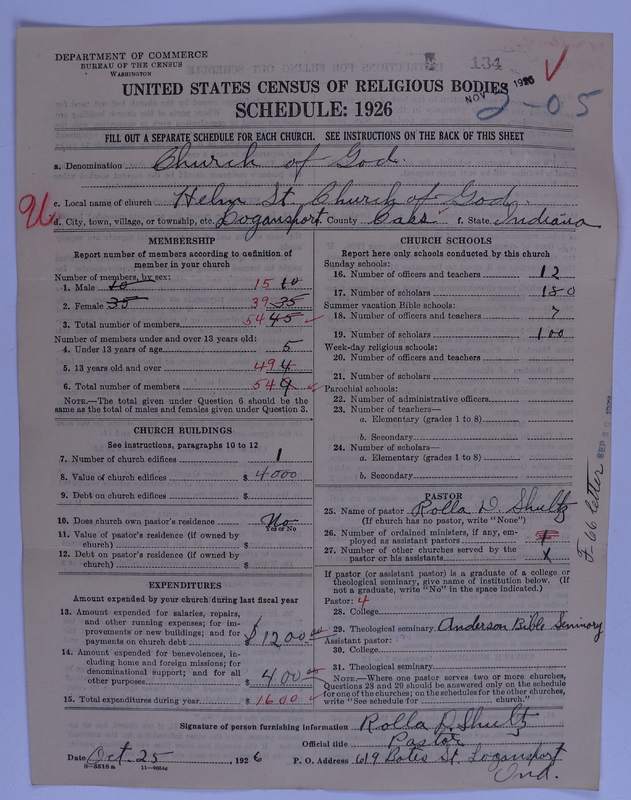 DEPARTMENT OF COMMERCE
BUREAU OF THE CENSUS
WASHINGTON
134
UNITED STATES CENSUS OF RELIGIOUS BODIES
NOV 1926
2-05
SCHEDULE: 1926
FILL OUT A SEPARATE SCHEDULE FOR EACH CHURCH. SEE INSTRUCTIONS ON THE BACK OF THIS SHEET
a. Denomination Church of God.
c. Local name of church Helm St. Church of God.
d. City, town, village, or township, etc. Logansport County Cass f. State Indiana
MEMBERSHIP
Report number of members according to definition of
member in your church
Number of members, by sex:
1. Male 10 15 10
2. Female 35 39 35
3. Total number of members 54 45
Number of members under and over 13 years old:
4. Under 13 years of age 5
5. 13 years old and over 49 4
6. Total number of members 54 9
NOTE.—The total given under Question 6 should be the
same as the total of males and females given under Question 3.
CHURCH BUILDINGS
See instructions, paragraphs 10 to 12
7. Number of church edifices 1
8. Value of church edifices $ 4000
9. Debt on church edifices $
10. Does church own pastor's residence No
Yes or No
11. Value of pastor's residence (if owned by
church) $
12. Debt on pastor's residence (if owned by
church) $
EXPENDITURES
Amount expended by your church during last fiscal year
13. Amount expended for salaries, repairs,
and other running expenses; for im-
provements or new buildings; and for
payments on church debt $ 1200 00
14. Amount expended for benevolences, in-
cluding home and foreign missions; for
denominational support; and for all
other purposes $ 400 00
15. Total expenditures during year $ 1600
CHURCH SCHOOLS
Report here only schools conducted by this church
Sunday schools:
16. Number of officers and teachers 12
17. Number of scholars 180
Summer vacation Bible schools:
18. Number of officers and teachers 7
19. Number of scholars 100
Week-day religious schools:
20. Number of officers and teachers
21. Number of scholars
Parochial schools:
22. Number of administrative officers
23. Number of teachers—
a. Elementary (grades 1 to 8)
b. Secondary
24. Number of scholars—
a. Elementary (grades 1 to 8)
b. Secondary
PASTOR
25. Name of pastor Rolla D. Shultz
(If church has no pastor, write "None")
26. Number of ordained ministers, if any, em-
ployed as assistant pastors
27. Number of other churches served by the
pastor or his assistants x
If pastor (or assistant pastor) is a graduate of a college or
theological seminary, give name of institution below. (If
not a graduate, write "No" in the space indicated.)
Pastor: 4
28. College
29. Theological seminary Anderson Bible Seminory
Assistant pastor:
30. College
31. Theological seminary
NOTE.—Where one pastor serves two or more churches,
Questions 28 and 29 should be answered only on the schedule
for one of the churches; on the schedules for the other churches,
write "See schedule for church."
F-66 letter
Signature of person furnishing information Rolla D. Shultz
Official title Pastor
Date Oct. 25, 1926 P. O. Address 619 Bates St. Logansport
Ind.
8—5518 a